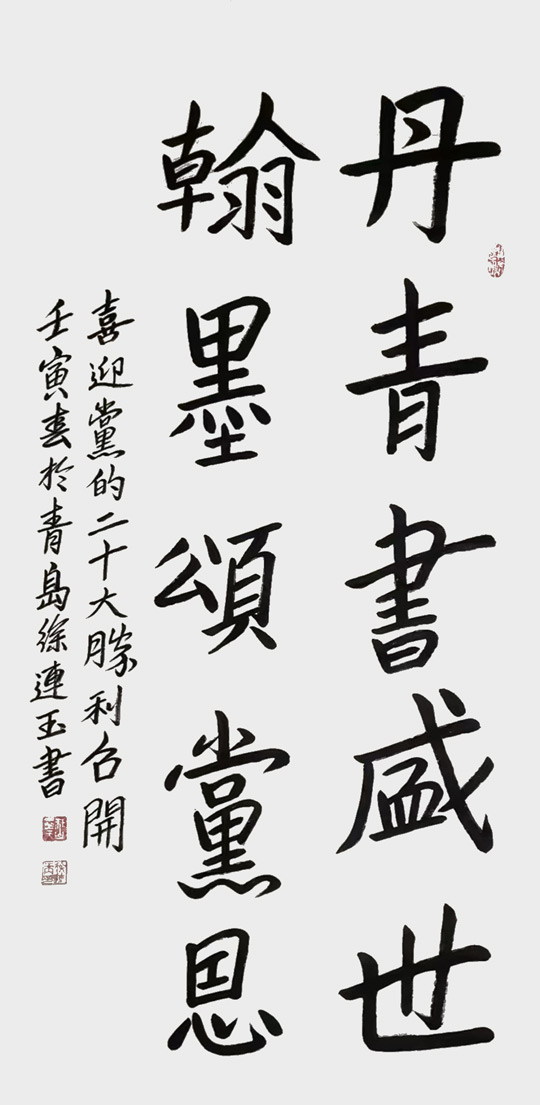 丹青書盛世
翰墨頌黨恩
喜迎黨的二十大勝利召開
壬寅春於青島徐連玉書